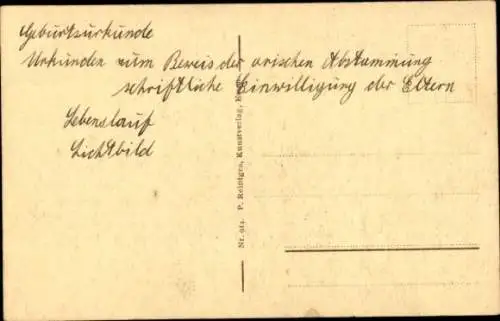 Geburtsurkunde
Urkunden zum Beweis der arischen Abstammung
schriftliche Einwilligung der Eltern
Lebenslauf
Lichtbild
P. Reintges, Kunstverlag,